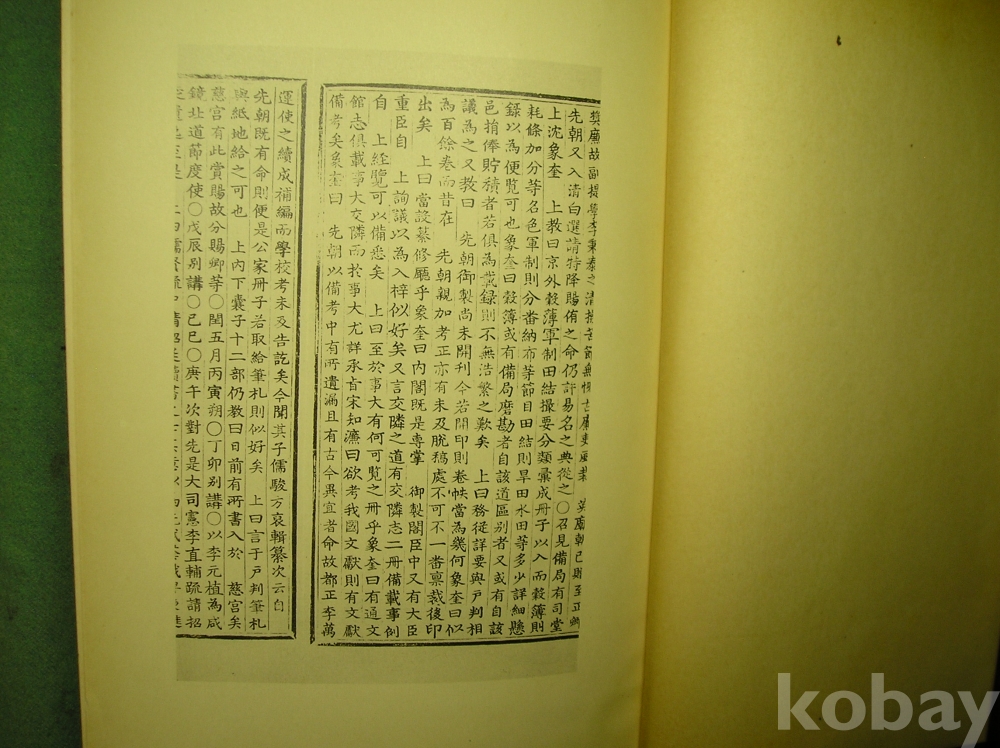 奬廉故副提學李秉泰之清操苦節無愧古廉吏
先朝又入清白選請特降賜侑之命仍許易名之典從之○召見備局有司堂
上沈象奎　上教曰京外穀簿軍制田結撮要分類彙成冊子以入而穀簿則
耗條加分等名色軍制則分番納布等節目田結則旱田水田等多少詳細懸
錄以為便覽可也象奎曰穀簿或有備局磨勘者自該道區別者又或有自該
邑捐俸貯積者若俱為載錄則不無浩繁之歎矣　上曰務從詳要與戶判相
議為之又教曰　先朝御製尚未開刊今若開印則卷帙當為幾何象奎曰似
為百餘卷而昔在　先朝親加考正亦有未及脫稿處不可不一番稟裁後印
出矣　上曰當設纂修廳乎象奎曰內閣既是專掌　御製閣臣中又有大臣
重臣自　上詢議以為入梓似好矣又言交隣之道有交隣志二冊備載事例
自　上經覽可以備悉矣　上曰至於事大有何可覽之冊乎象奎曰有通文
館志俱載事大交隣而於事大尤詳承旨宋知濂曰欲考我國文獻則有文獻
備考矣象奎曰　先朝以備考中有所遺漏且有古今異宜者命故都正李萬
運使之續成補編而學校考未及告訖矣今聞其子儒駿方裒輯纂次云自
先朝既有命則便是公家冊子若取給筆札則似好矣　上曰言于戶判筆札
與紙地給之可也　上內下囊子十二部仍教曰日前有所書入於　慈宮矣
慈宮有此賞賜故分賜卿等○閏五月丙寅朔○丁卯別講○以李元植為咸
鏡北道節度使○戊辰別講○己巳○庚午次對先是大司憲李直輔疏請招
kobay